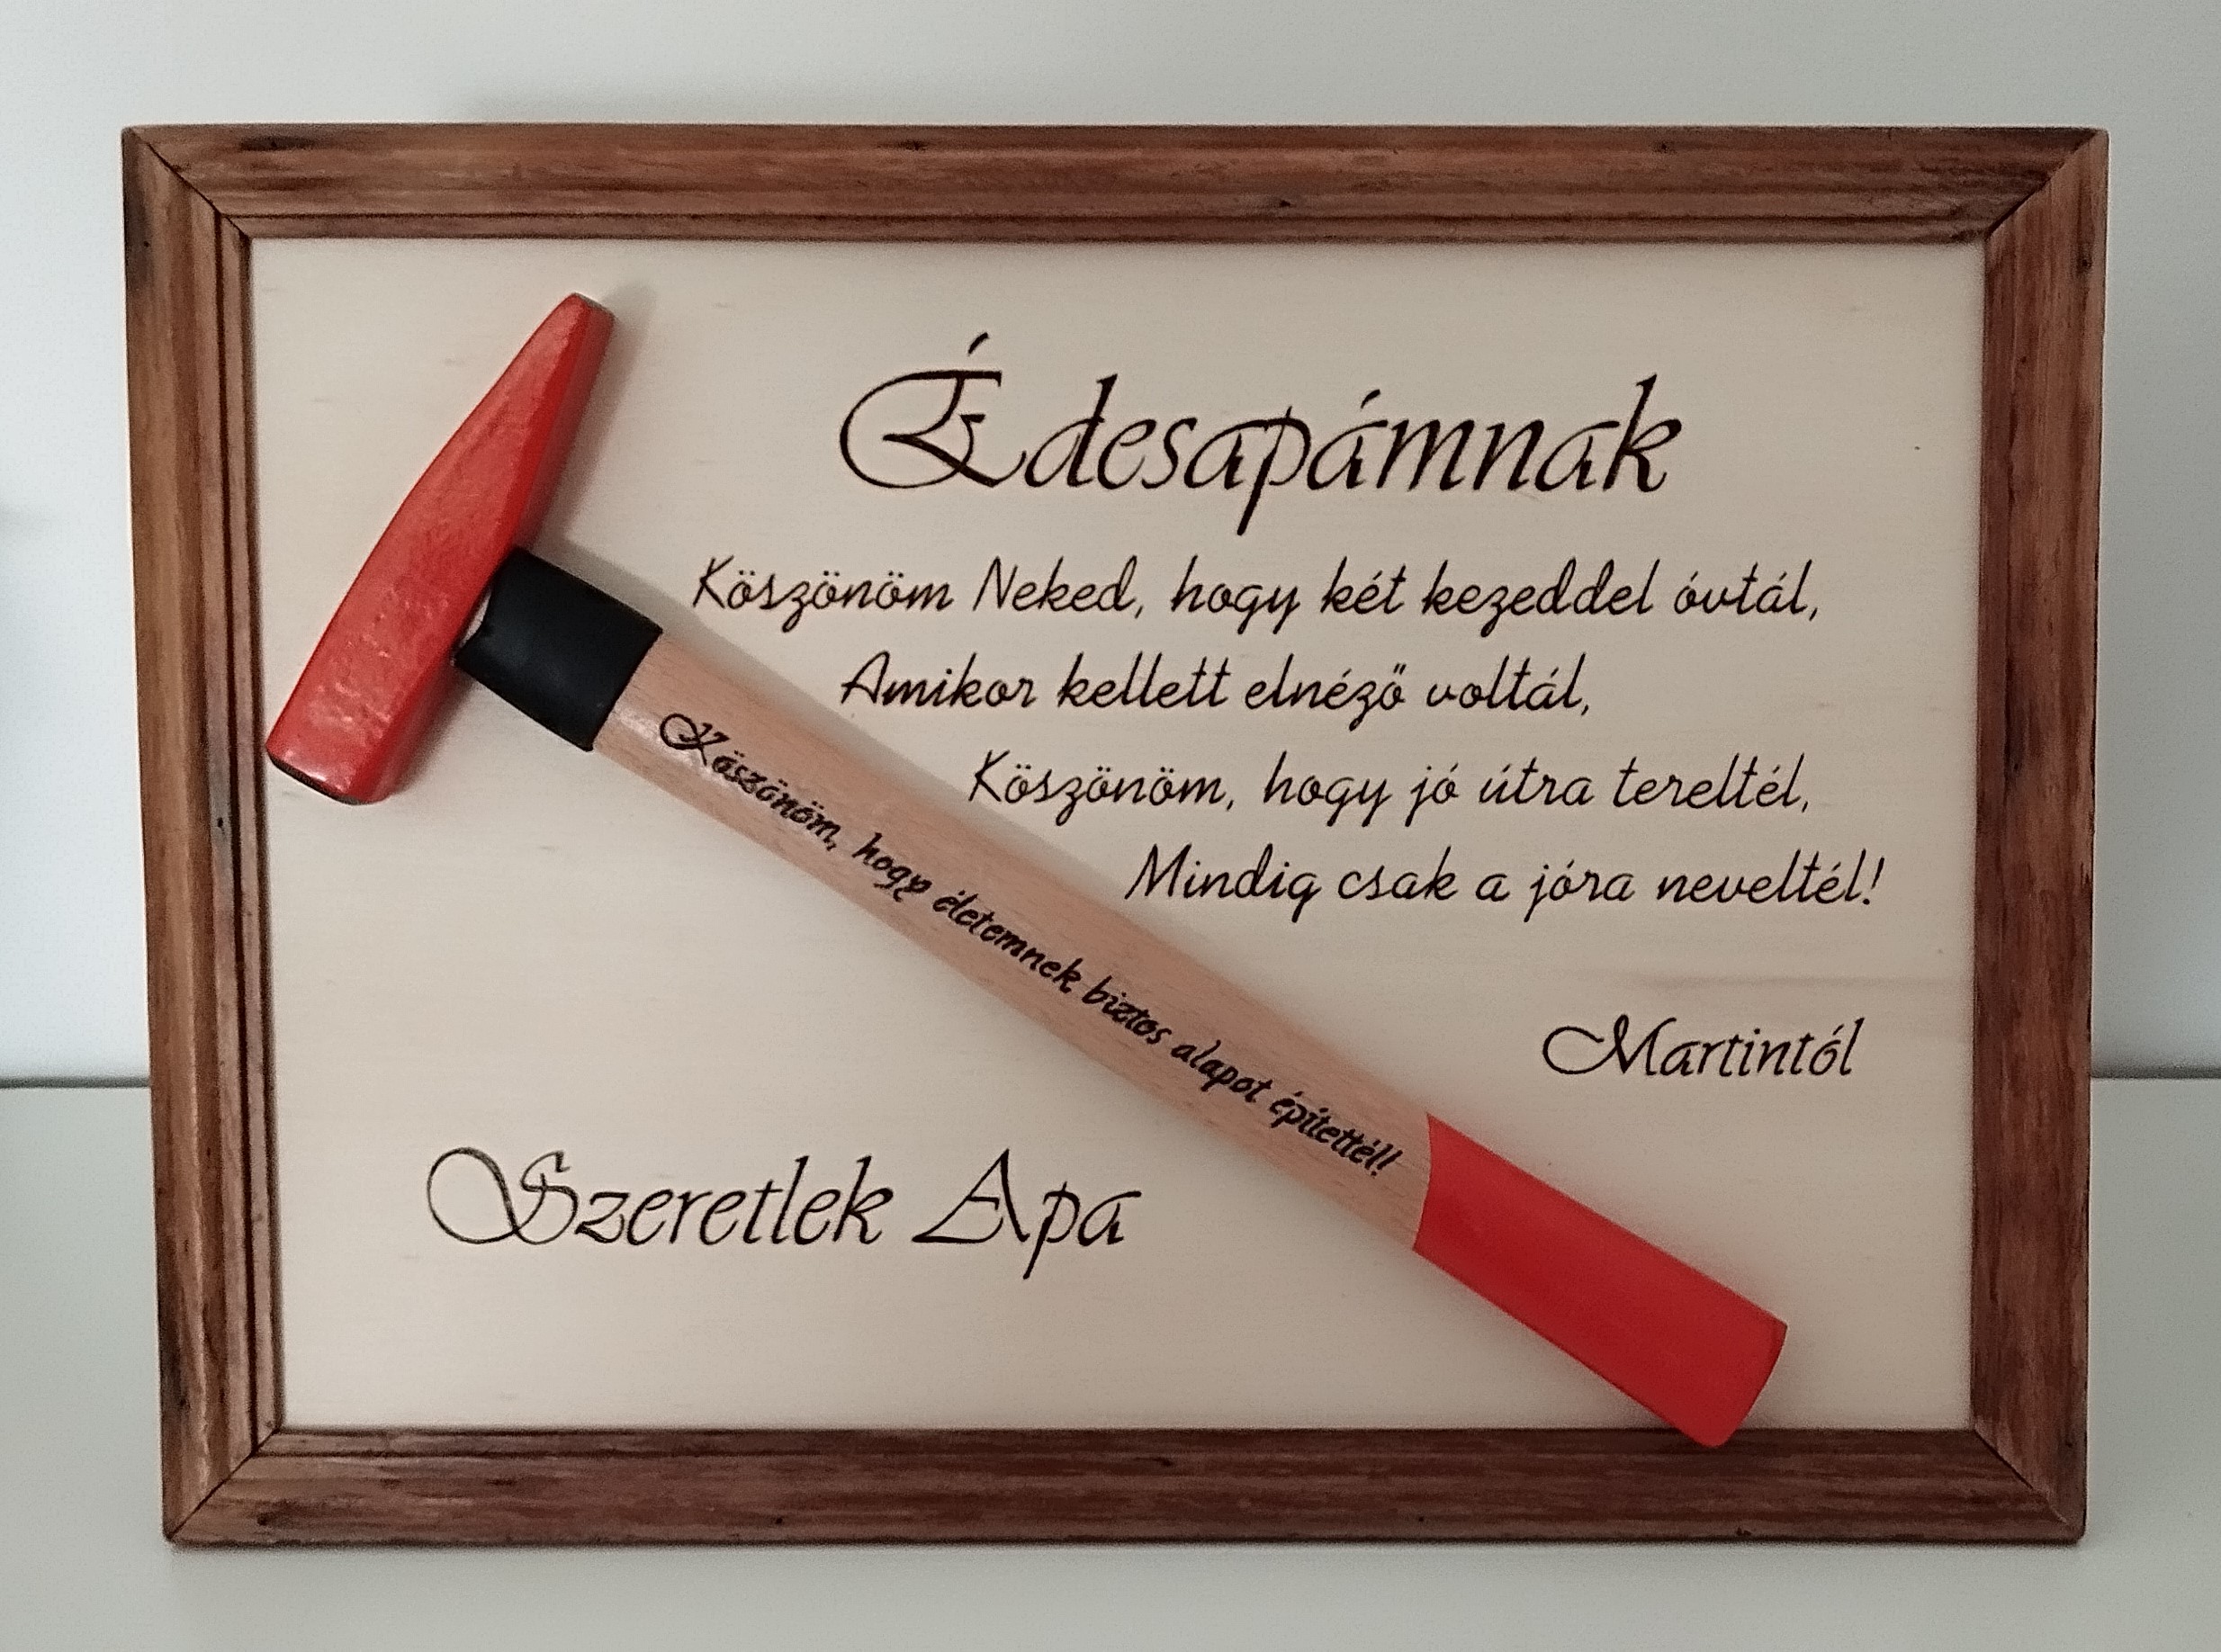 Édesapámnak
Köszönöm Neked, hogy két kezeddel óvtál,
Amikor kellett elnéző voltál,
Köszönöm, hogy jó útra tereltél,
Mindig csak a jóra neveltél!
Köszönöm, hogy életemnek biztos alapot építettél!
Martintól
Szeretlek Apa